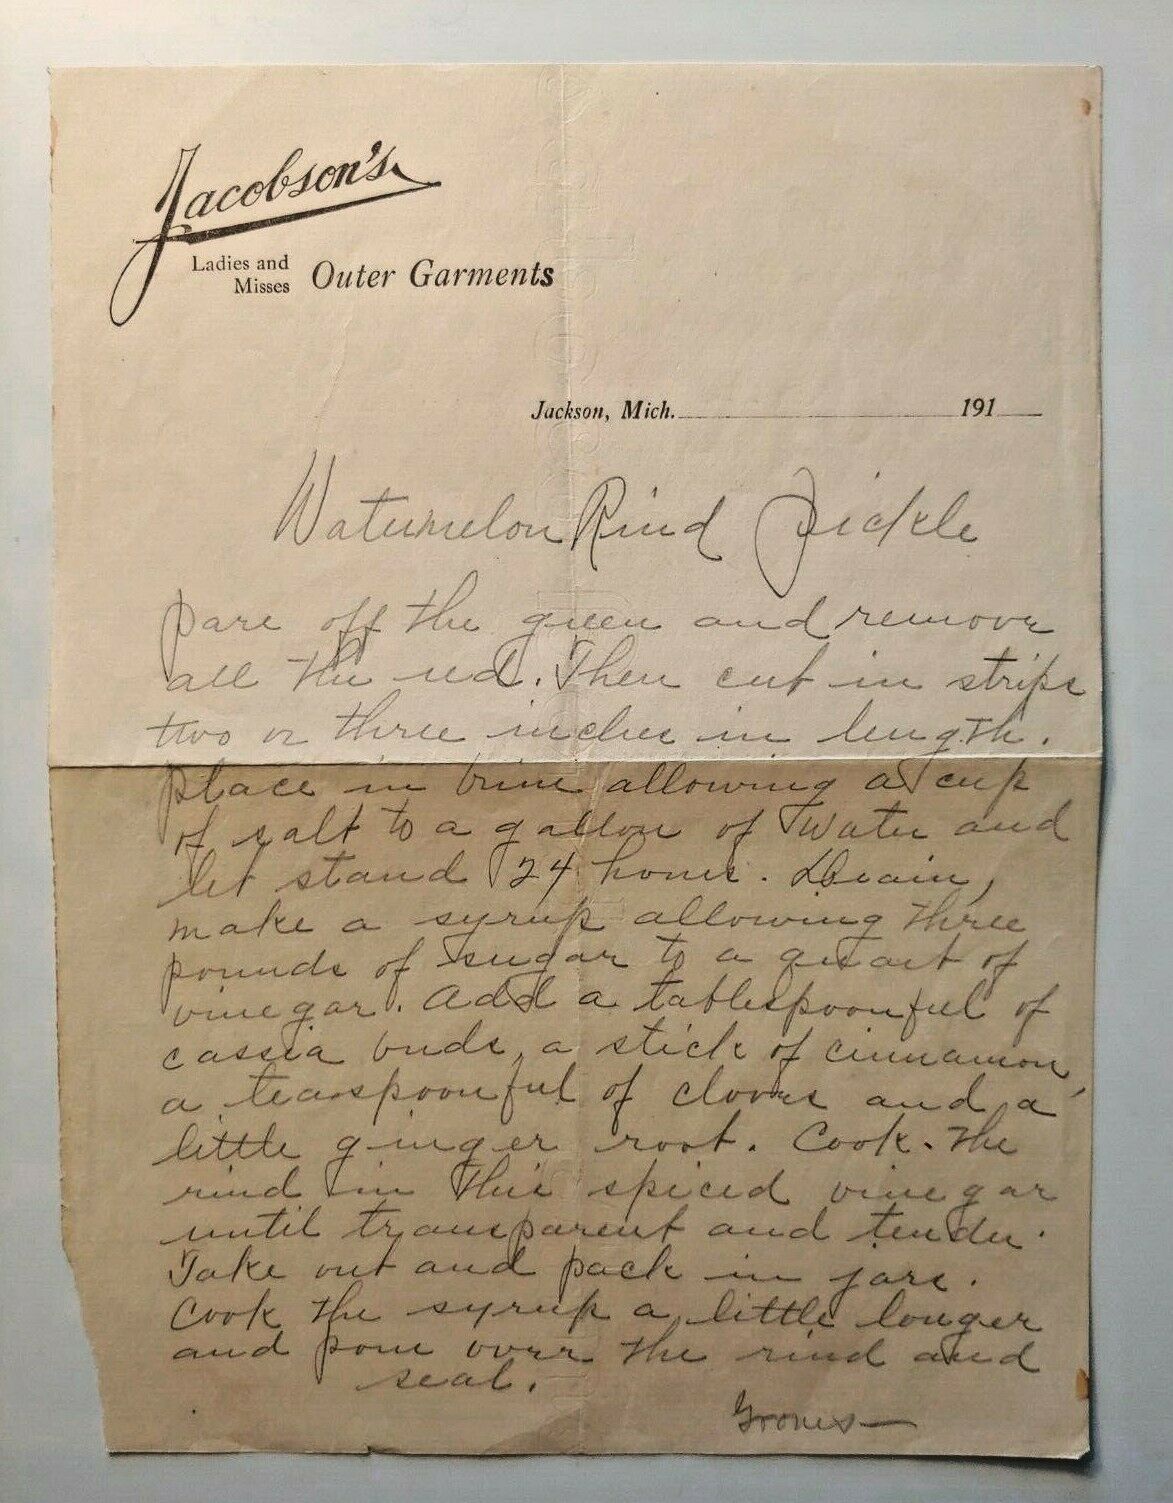 Jacobson's
Ladies and
Misses Outer Garments
Jackson, Mich. 191
Watermelon Rind Pickle
pare off the green and remove
all the red. Then cut in strips
two or three inches in length.
place in brine allowing a cup
of salt to a gallon of water and
let stand 24 hours. Drain,
make a syrup allowing three
pounds of sugar to a quart of
vinegar. Add a tablespoonful of
cassia buds, a stick of cinnamon,
a teaspoonful of cloves and a
little ginger root. Cook the
rind in this spiced vinegar
until transparent and tender.
Take out and pack in jars.
Cook the syrup a little longer
and pour over the rind and
seal.